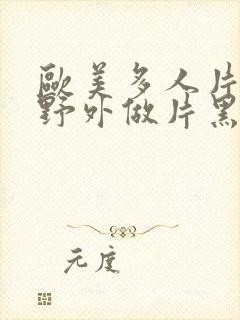 歐美多人片
野外做片黑
元度